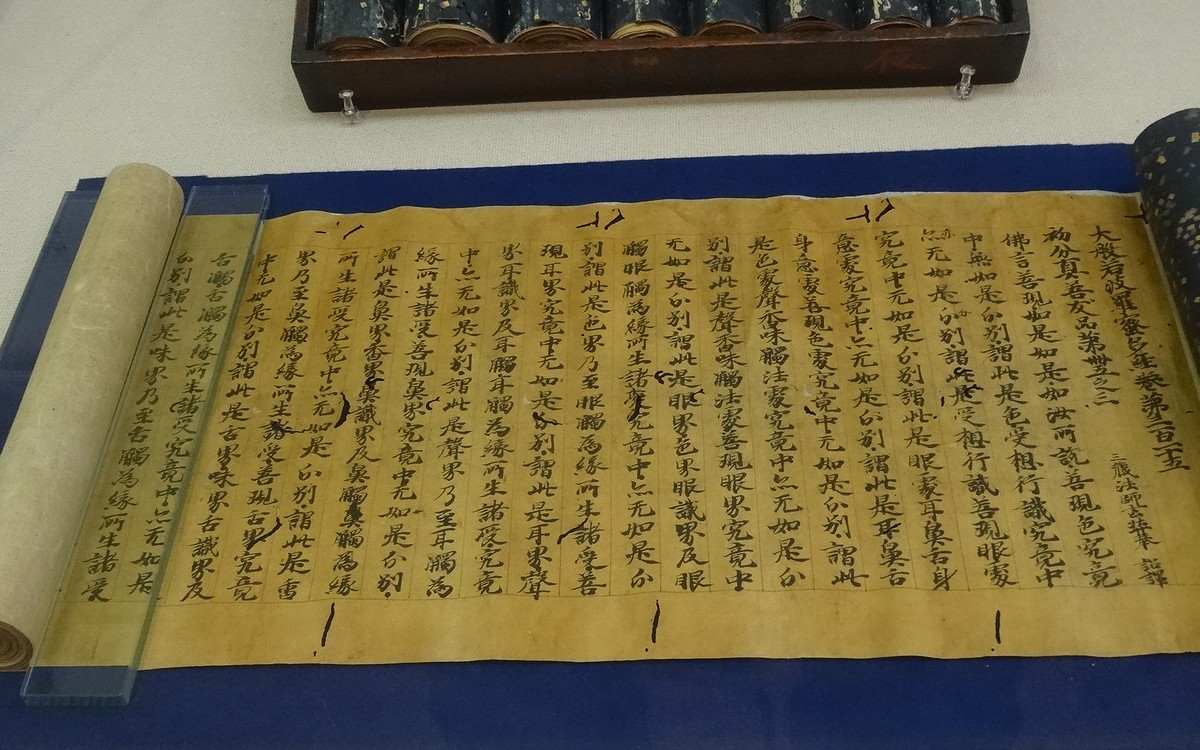 大般若波羅蜜多經卷第三百一十五
三藏法師玄奘奉 詔譯
初分真善友品第卌五之三
佛言善現如是如是如汝所說善現色究竟
中無如是分別謂此是色受想行識究竟中
亦无如是分別謂此是受想行識善現眼處
究竟中无如是分別謂此是眼處耳鼻舌身
意處究竟中亦无如是分別謂此是耳鼻舌
身意處善現色處究竟中无如是分別謂此
是色處聲香味觸法處究竟中亦无如是分
別謂此是聲香味觸法處善現眼界究竟中
无如是分別謂此是眼界色界眼識界及眼
觸眼觸為緣所生諸受究竟中亦无如是分
別謂此是色界乃至眼觸為緣所生諸受善
現耳界究竟中无如是分別謂此是耳界聲
界耳識界及耳觸耳觸為緣所生諸受究竟
中亦无如是分別謂此是聲界乃至耳觸為
緣所生諸受善現鼻界究竟中无如是分別
謂此是鼻界香界鼻識界及鼻觸鼻觸為緣
所生諸受究竟中亦无如是分別謂此是香
界乃至鼻觸為緣所生諸受善現舌界究竟
中无如是分別謂此是舌界味界舌識界及
舌觸舌觸為緣所生諸受究竟中亦无如是
分別謂此是味界乃至舌觸為緣所生諸受